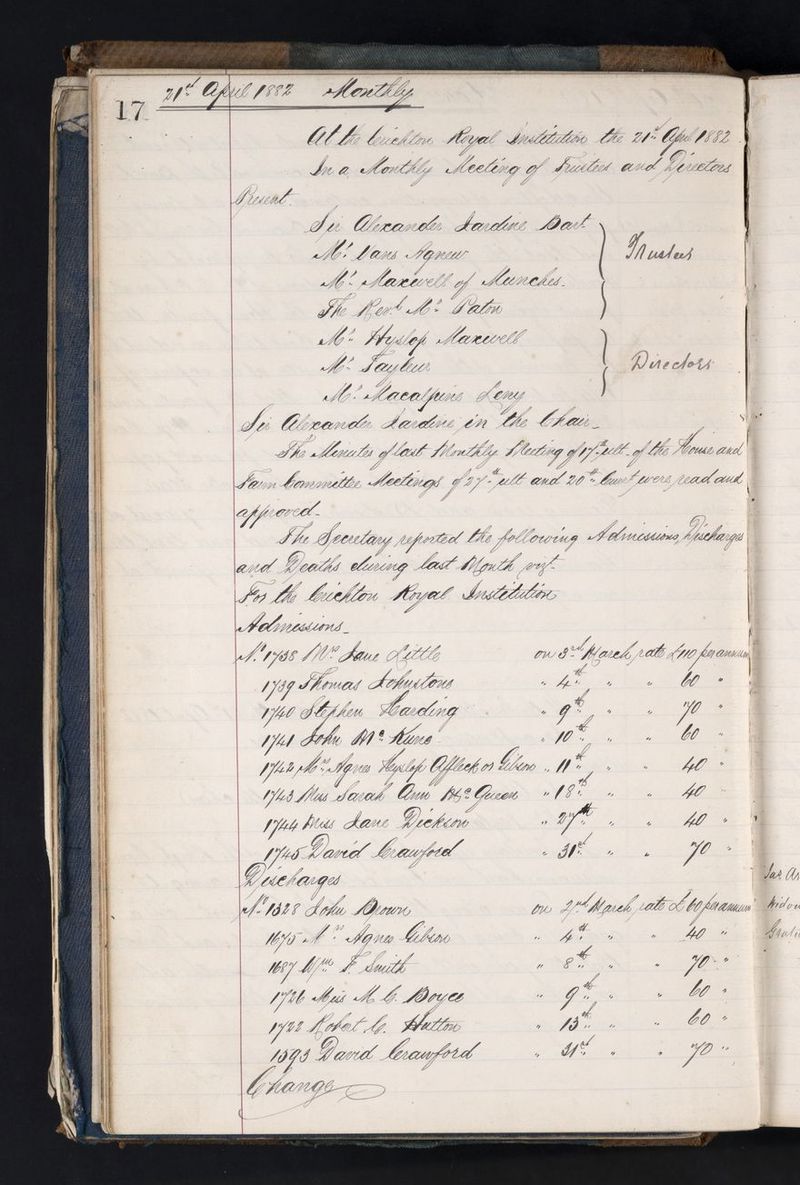 17
21st April 1882 Monthly
At the Crichton Royal Institution the 21st April 1882
In a Monthly Meeting of Trustees and Directors
Present.
Sir Alexander Jardine Bart.
Mr. Vans Agnew
Mr. Maxwell of Munches.
The Revd. Mr. Paton
Trustees
Mr. Hyslop Maxwell
Mr. Tayleur
Mr. Macalpine Leny
Directors
Sir Alexander Jardine in the Chair.
The Minutes of last Monthly Meeting of 17th ult. of the House and
Farm Committee Meetings of 27th ult and 20th Currt. were read and
approved.
The Secretary reported the following Admissions, Discharges
and Deaths during last Month vizt.
For the Crichton Royal Institution
Admissions.
No. 1738 Mrs Jane Little on 3rd March, rate £110 per annum
1739 Thomas Johnstone " 4th " " 60 "
1740 Stephen Harding " 9th " " 70 "
1741 John Mc. Kune " 10th " " 60 "
1742 Mrs. Agnes Hyslop Affleck or Gibson " 11th " " 40 "
1743 Miss Sarah Ann Mc. Queen " 18th " " 40 "
1744 Miss Jane Dickson " 27th " " 40 "
1745 David Crawford " 31st " " 70 "
Discharges
No. 1328 John Brown on 2nd March, rate £60 per annum
1675 Mrs Agnes Gibson " 4th " " 40 "
1687 Wm F. Smith " 8th " " 70 "
1726 Miss M. C. Boyce " 9th " " 60 "
1722 Robert C. Hutton " 13th " " 60 "
1593 David Crawford " 31st " " 70 "
Change